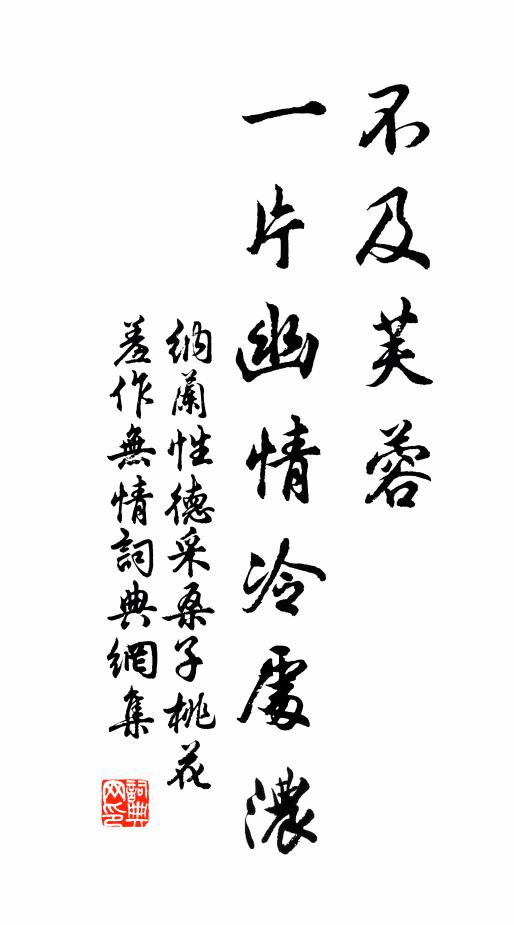 不及芙蓉
一片幽情冷處濃
納蘭性德采桑子桃花
羞作無情詞典網集
詞典網印